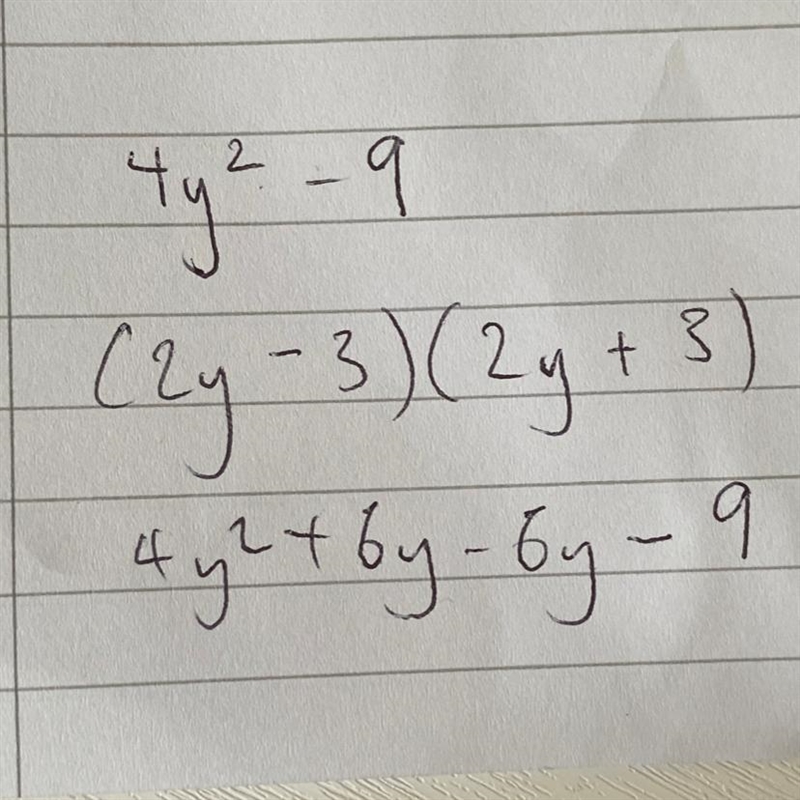 4y² - 9
(2y - 3)(2y + 3)
4y² + 6y - 6y - 9